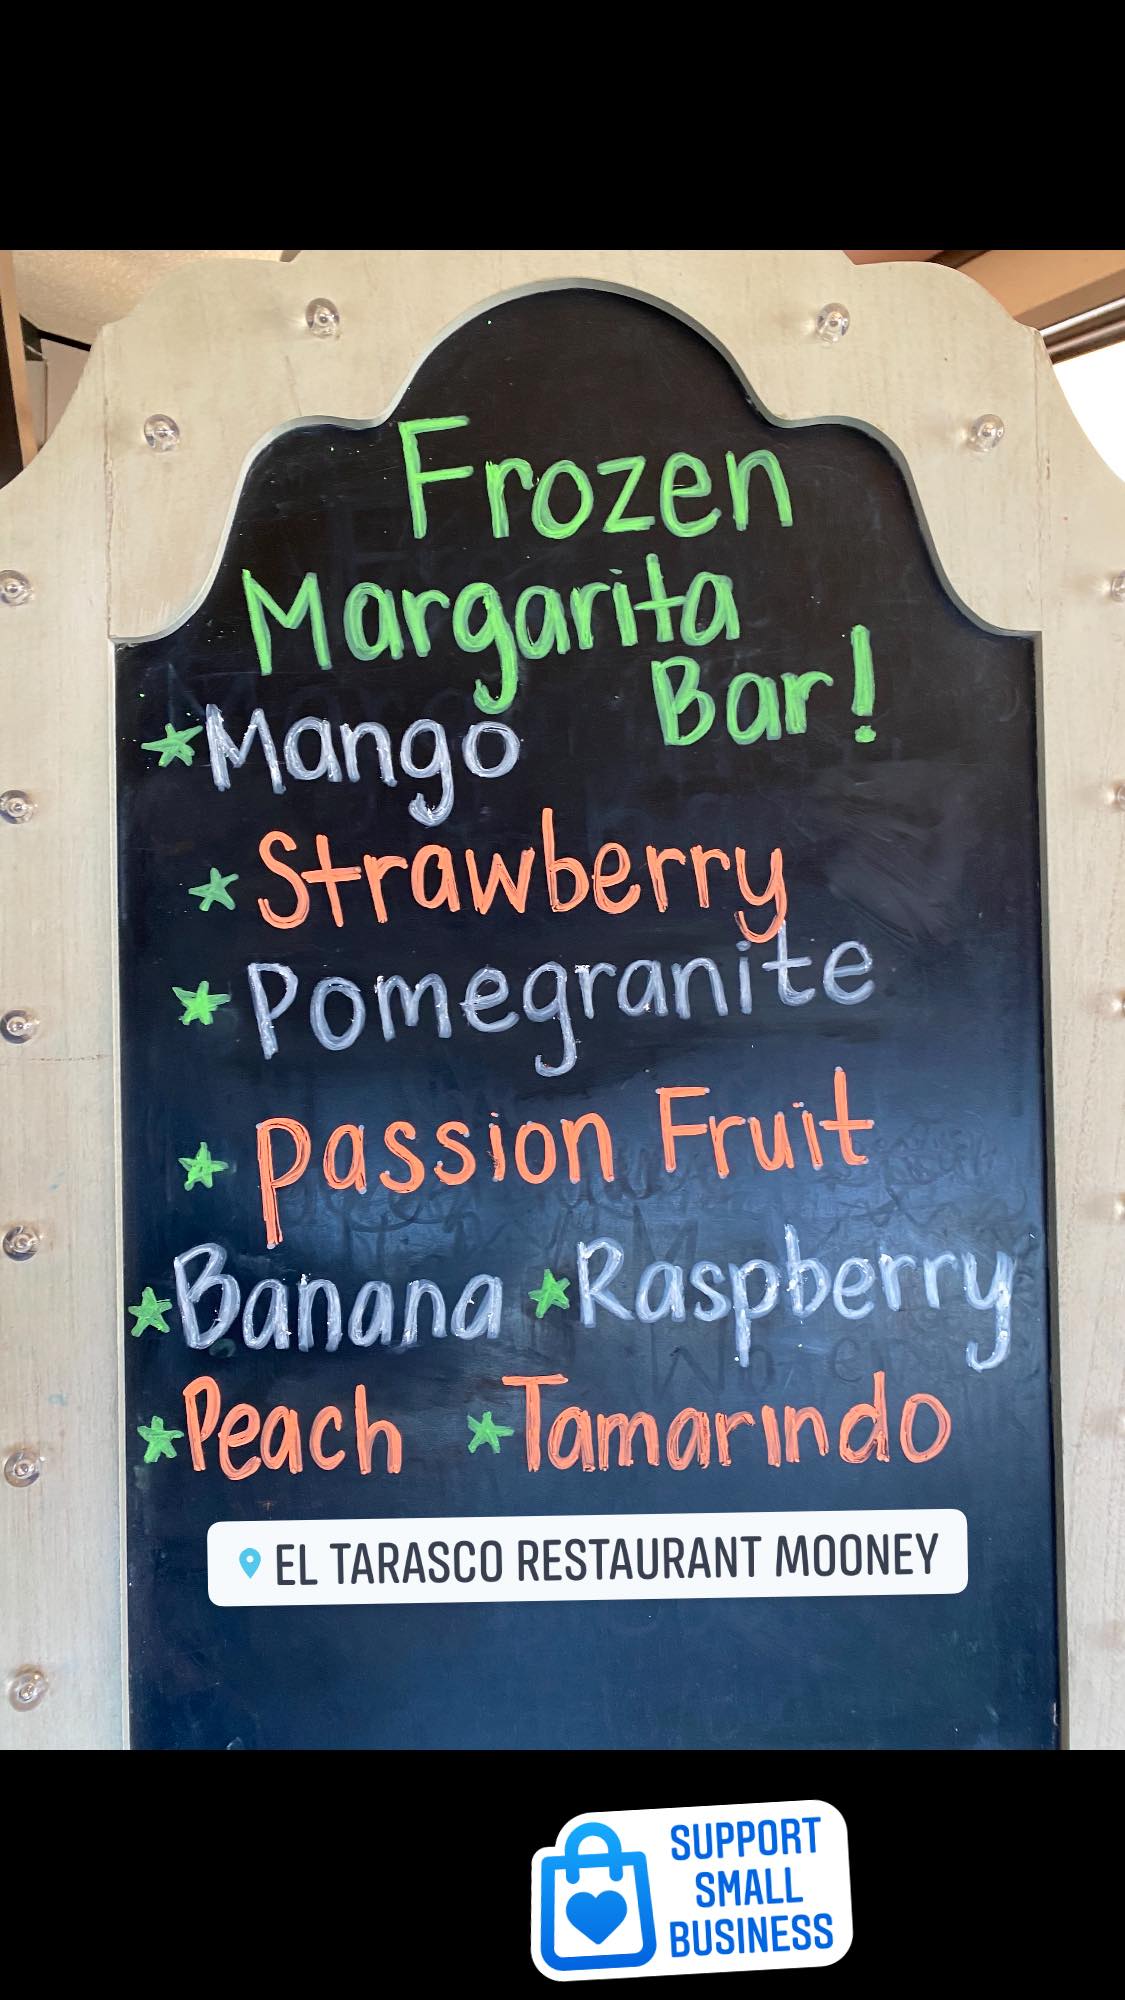 Frozen
Margarita
Bar!
Mango
Strawberry
Pomegranite
Passion Fruit
Banana Raspberry
Peach Tamarindo
EL TARASCO RESTAURANT MOONEY
SUPPORT
SMALL
BUSINESS